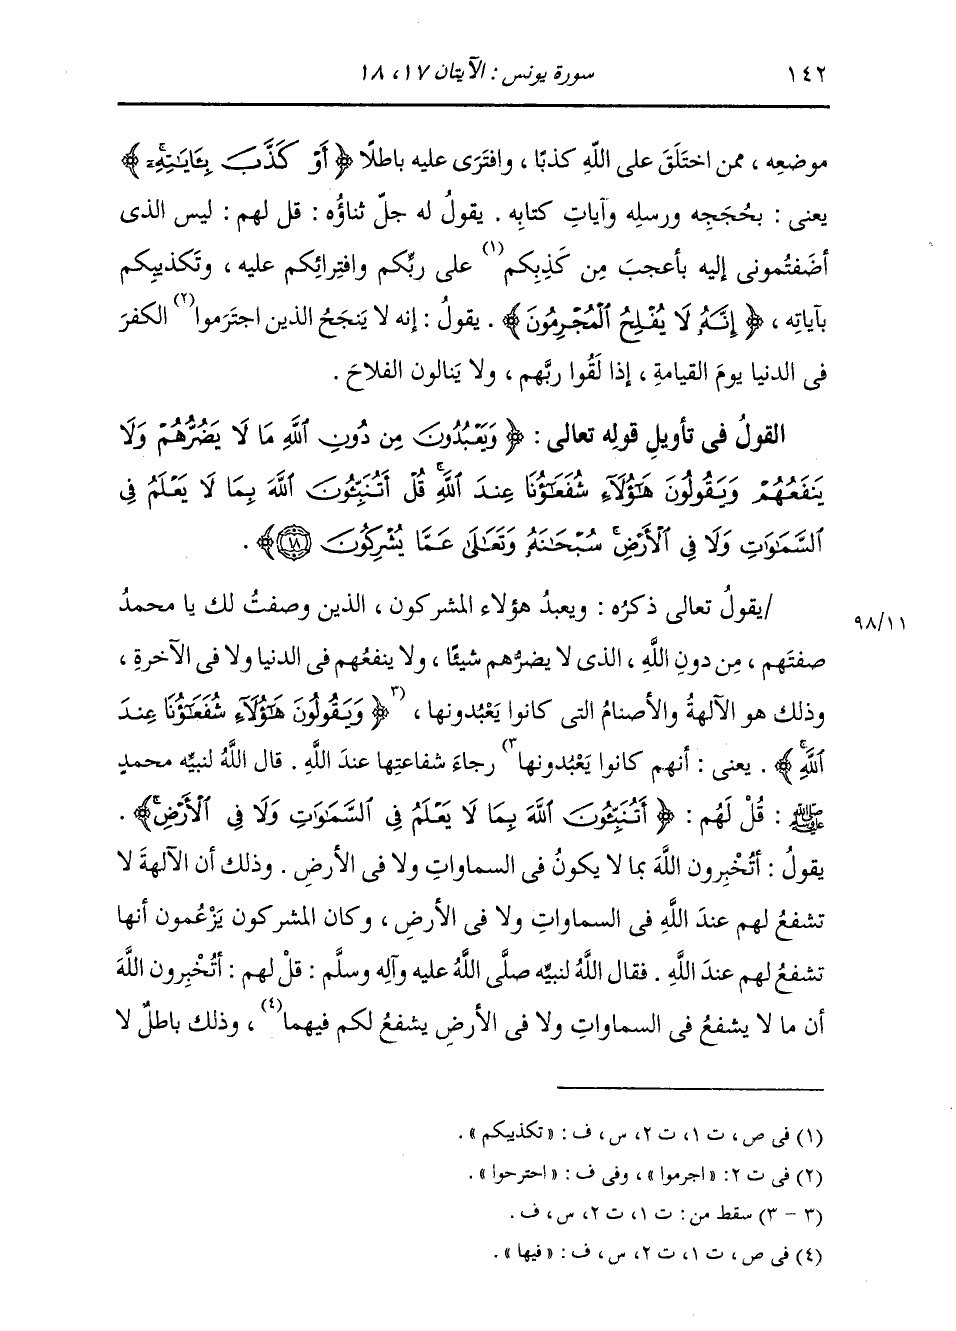 ١٤٢
سورة يونس : الآيتان ١٧، ١٨
موضعِه ، ممن اختَلَقَ على اللَّهِ كذبًا ، وافتَرَى عليه باطلًا ﴿ أَوْ كَذَّبَ بِـَٔايَـٰتِهِۦٓۚ ﴾
يعنى : بحُجَجِه ورسلِه وآياتِ كتابِه . يقولُ له جلّ ثناؤُه : قل لهم : ليس الذى
أضَفتُمونى إليه بأعجبَ مِن كَذِبِكم(١) على ربِّكم وافتِرائِكم عليه ، وتَكذيبِكم
بآياتِه ، ﴿ إِنَّهُۥ لَا يُفْلِحُ ٱلْمُجْرِمُونَ ﴾ . يقولُ : إنه لا يَنجَحُ الذين اجترَموا(٢) الكفرَ
فى الدنيا يومَ القيامةِ ، إذا لَقُوا ربَّهم ، ولا يَنالون الفلاحَ .
القولُ فى تأويلِ قولِه تعالى : ﴿ وَيَعْبُدُونَ مِن دُونِ ٱللَّهِ مَا لَا يَضُرُّهُمْ وَلَا
يَنفَعُهُمْ وَيَقُولُونَ هَـٰٓؤُلَآءِ شُفَعَـٰٓؤُنَا عِندَ ٱللَّهِۚ قُلْ أَتُنَبِّـُٔونَ ٱللَّهَ بِمَا لَا يَعْلَمُ فِى
ٱلسَّمَـٰوَٰتِ وَلَا فِى ٱلْأَرْضِۚ سُبْحَـٰنَهُۥ وَتَعَـٰلَىٰ عَمَّا يُشْرِكُونَ ١٨ ﴾ .
/يقولُ تعالى ذكرُه : ويعبدُ هؤلاء المشركون ، الذين وصفتُ لك يا محمدُ
٩٨/١١
صفتَهم ، مِن دونِ اللَّهِ ، الذى لا يضرُّهم شيئًا ، ولا ينفعُهم فى الدنيا ولا فى الآخرةِ ،
وذلك هو الآلهةُ والأصنامُ التى كانوا يَعْبُدونها ، (٣﴿ وَيَقُولُونَ هَـٰٓؤُلَآءِ شُفَعَـٰٓؤُنَا عِندَ
ٱللَّهِۚ ﴾ . يعنى : أنهم كانوا يَعْبُدونها٣) رجاءَ شفاعتِها عندَ اللَّهِ . قال اللَّهُ لنبيِّه محمدٍ
ﷺ : قُلْ لَهُم : ﴿ أَتُنَبِّـُٔونَ ٱللَّهَ بِمَا لَا يَعْلَمُ فِى ٱلسَّمَـٰوَٰتِ وَلَا فِى ٱلْأَرْضِۚ ﴾ .
يقولُ : أتُخْبِرون اللَّهَ بما لا يكونُ فى السماواتِ ولا فى الأرضِ . وذلك أن الآلهةَ لا
تشفعُ لهم عندَ اللَّهِ فى السماواتِ ولا فى الأرضِ ، وكان المشركون يَزْعُمون أنها
تشفعُ لهم عندَ اللَّهِ . فقال اللَّهُ لنبيِّه صلَّى اللَّهُ عليه وآلِه وسلَّم : قلْ لهم : أتُخْبِرون اللَّهَ
أن ما لا يشفعُ فى السماواتِ ولا فى الأرضِ يشفعُ لكم فيهما(٤) ، وذلك باطلٌ لا
(١) فى ص ، ت ١، ت ٢، س ، ف : « تكذيبكم » .
(٢) فى ت ٢: « اجرموا » ، وفى ف : « احترحوا » .
(٣ - ٣) سقط من : ت ١، ت ٢، س ، ف .
(٤) فى ص ، ت ١، ت ٢، س ، ف : « فيها » .